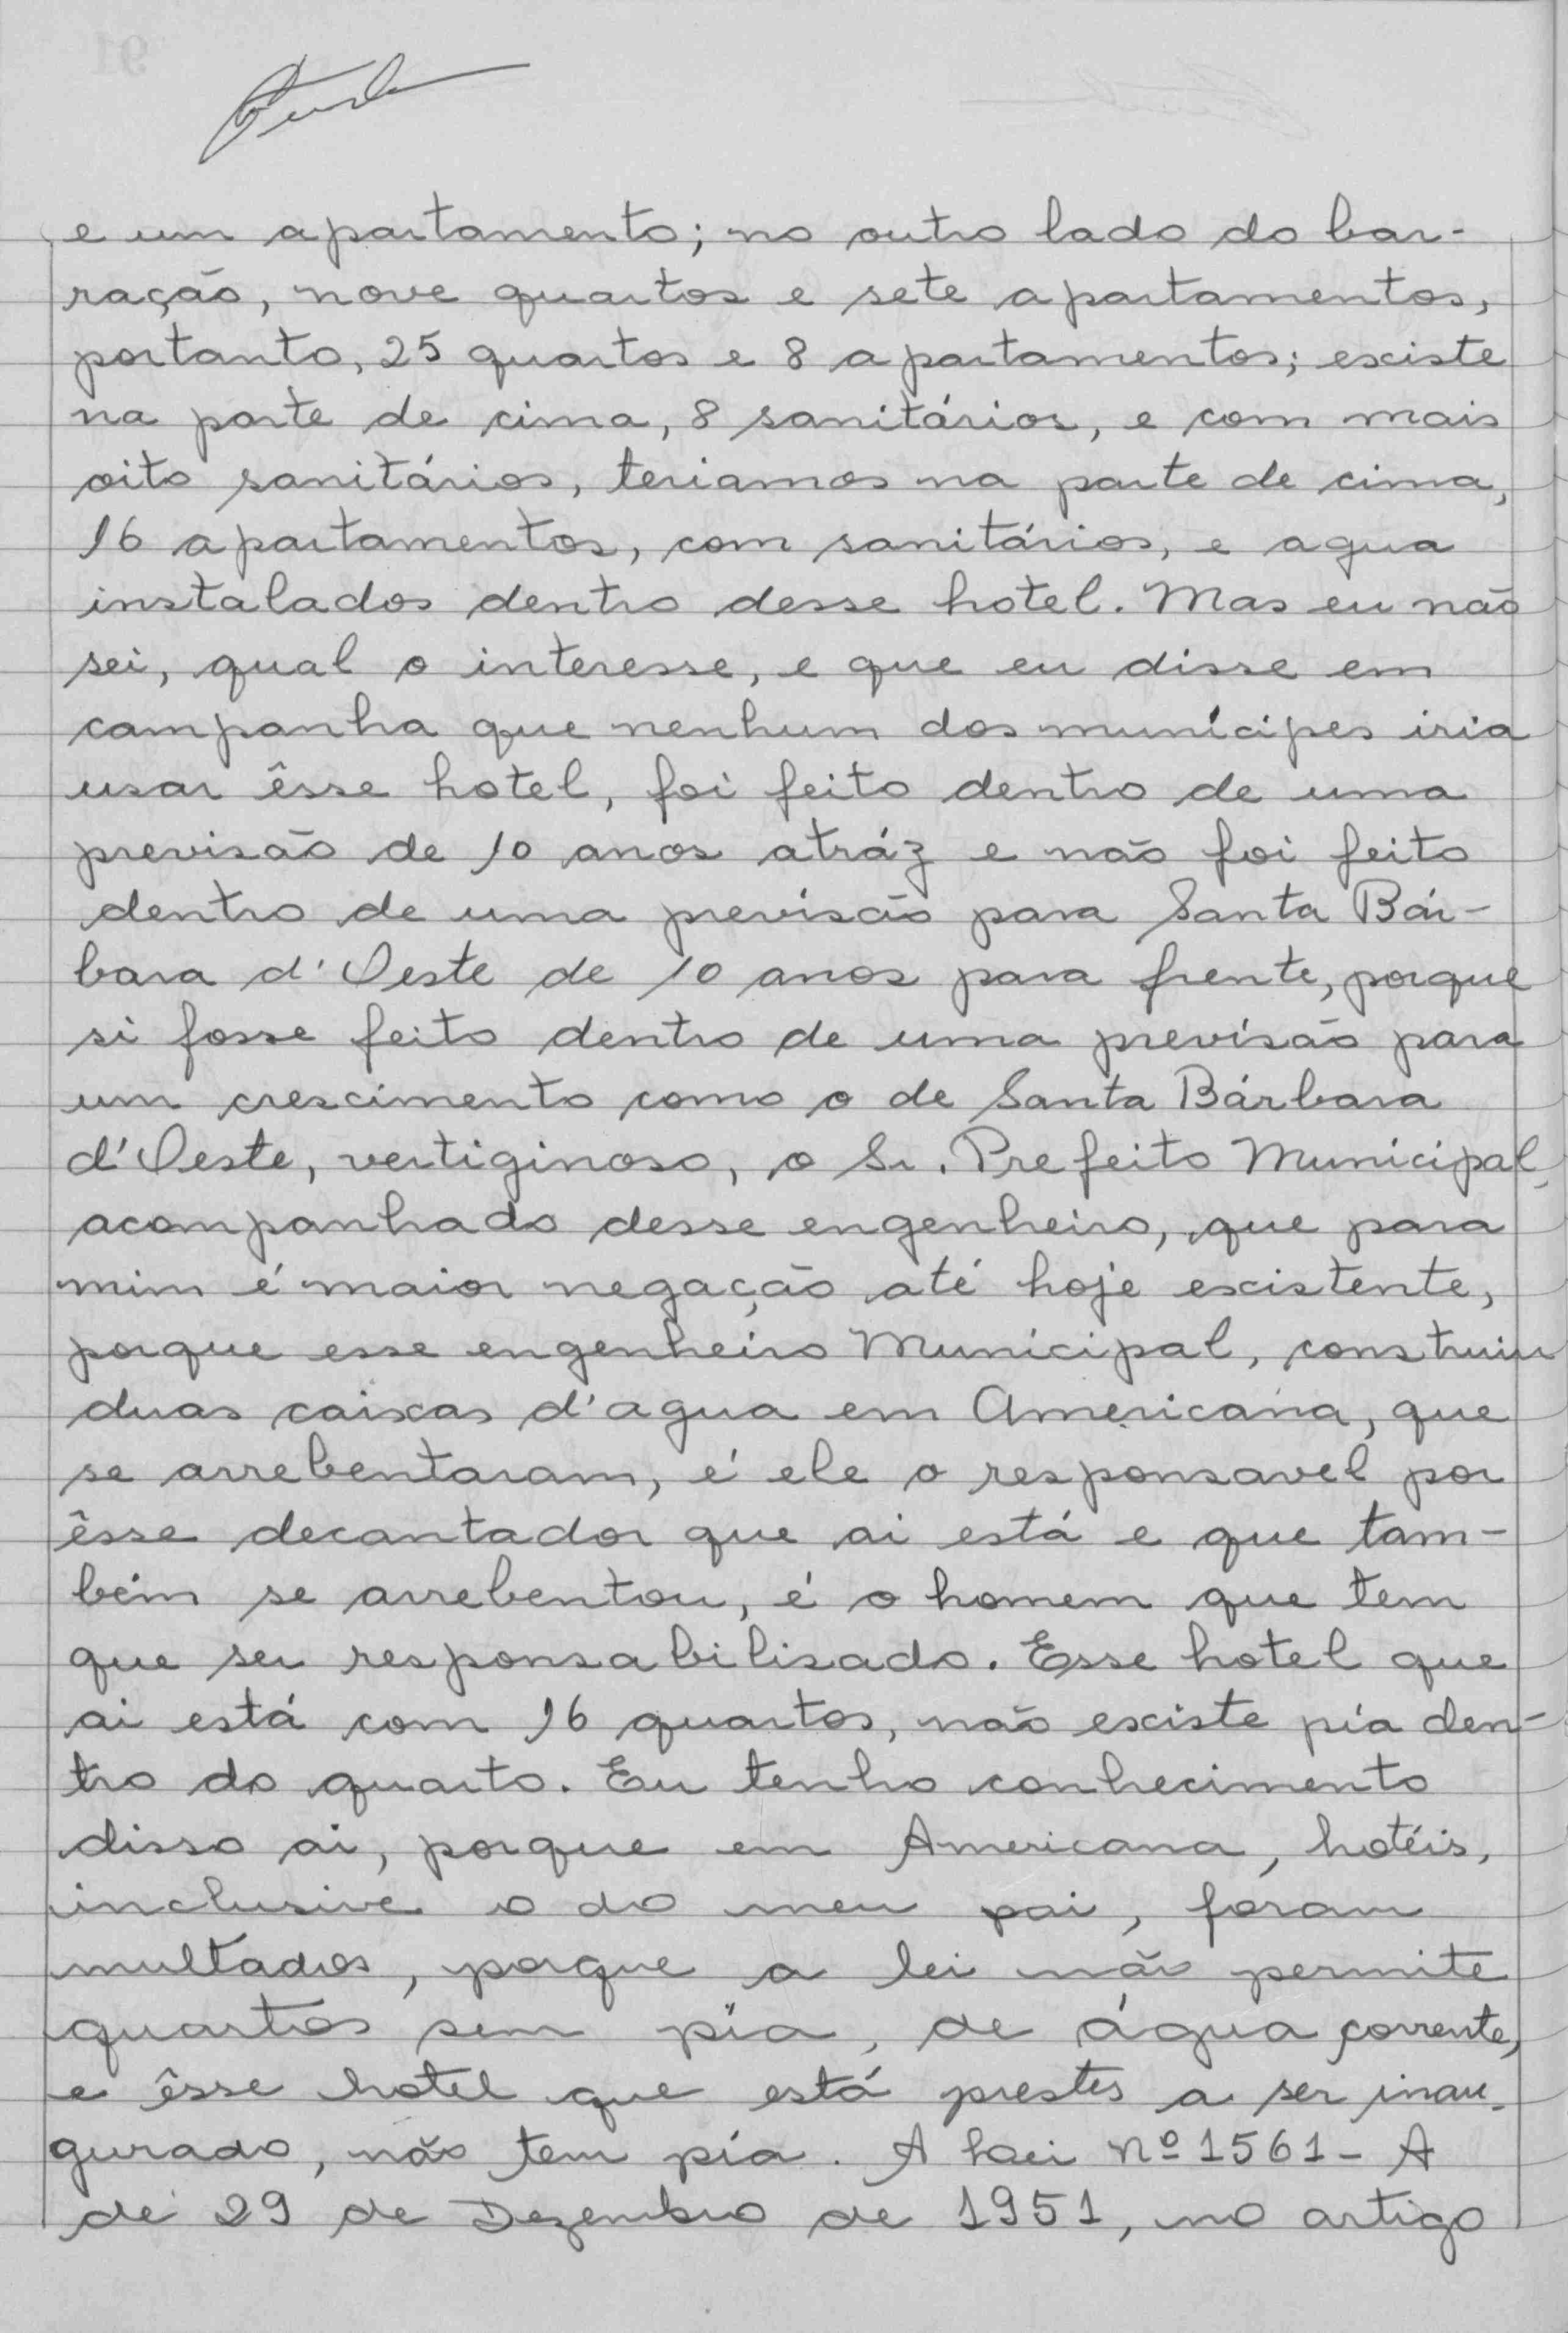 e um apartamento; no outro lado do bar-
ração, nove quartos e sete apartamentos,
portanto, 25 quartos e 8 apartamentos; existe
na parte de cima, 8 sanitários, e com mais
oito sanitários, teriamos na parte de cima,
16 apartamentos, com sanitários, e agua
instalados dentro desse hotel. Mas eu não
sei, qual o interesse, e que eu disse em
campanha que nenhum dos munícipes iria
usar êsse hotel, foi feito dentro de uma
previsão de 10 anos atráz e não foi feito
dentro de uma previsão para Santa Bár-
bara d'Oeste de 10 anos para frente, porque
si fosse feito dentro de uma previsão para
um crescimento como o de Santa Bárbara
d'Oeste, vertiginoso, o Sr. Prefeito Municipal,
acompanhado desse engenheiro, que para
mim é maior negação até hoje existente,
porque esse engenheiro Municipal, construiu
duas caixas d'agua em Americana, que
se arrebentaram, é ele o responsavel por
êsse decantador que ai está e que tam-
bém se arrebentou, é o homem que tem
que ser responsabilisado. Esse hotel que
ai está com 16 quartos, não existe pia den-
tro do quarto. Eu tenho conhecimento
disso ai, porque em Americana, hotéis,
inclusive o do meu pai, foram
multados, porque a lei não permite
quartos sem pia, de água corrente,
e êsse hotel que está prestes a ser inau-
gurado, não tem pia. A Lei Nº 1561-A
de 29 de Dezembro de 1951, no artigo